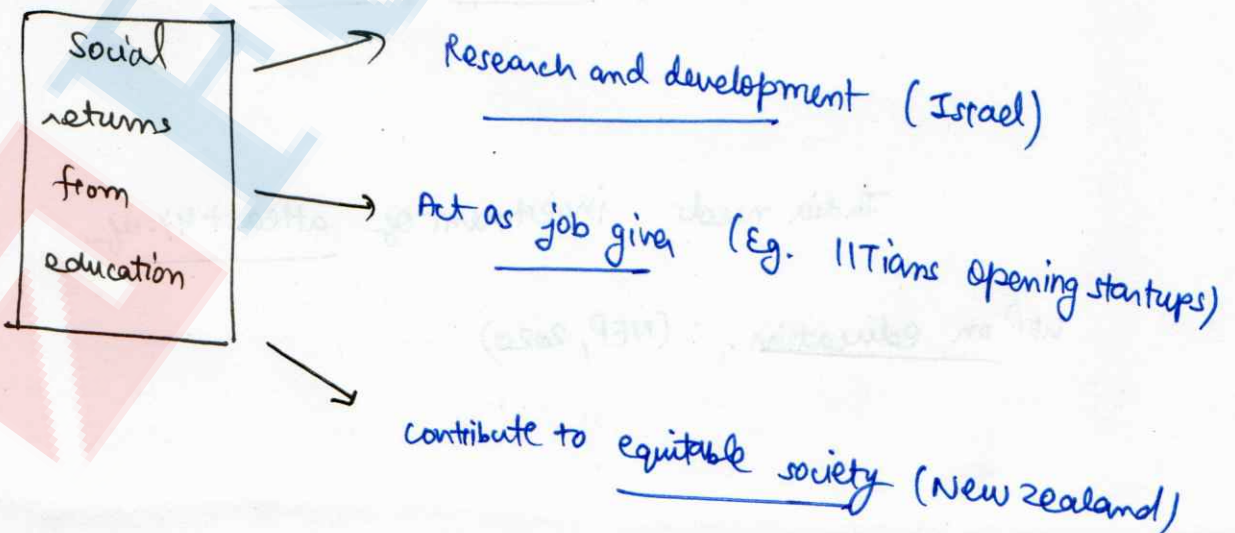 Social
returns
from
education
Research and development (Israel)
Act as job giver (Eg. IITians opening startups)
contribute to equitable society (New Zealand)